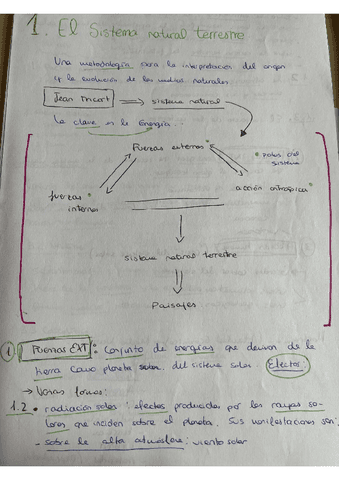 1. El Sistema natural terrestre
Una metodología para la interpretación del origen
y la evolución de los medios naturales.
Jean Tricart → sistema natural
La clave en la Energía...
Fuerzas externas*
* Polos del
sistema
fuerzas*
internas
acción antrópica*
sistema natural terrestre
Paisajes
1 Fuerzas EXT*: Conjunto de energías que derivan de la
tierra como planeta solar del sistema solar. Efectos:
→ Varias formas:
1.2 • radiación solar: efectos producidos por los rayos so-
lares que inciden sobre el planeta. Sus manifestaciones son:
- sobre la alta atmósfera: viento solar